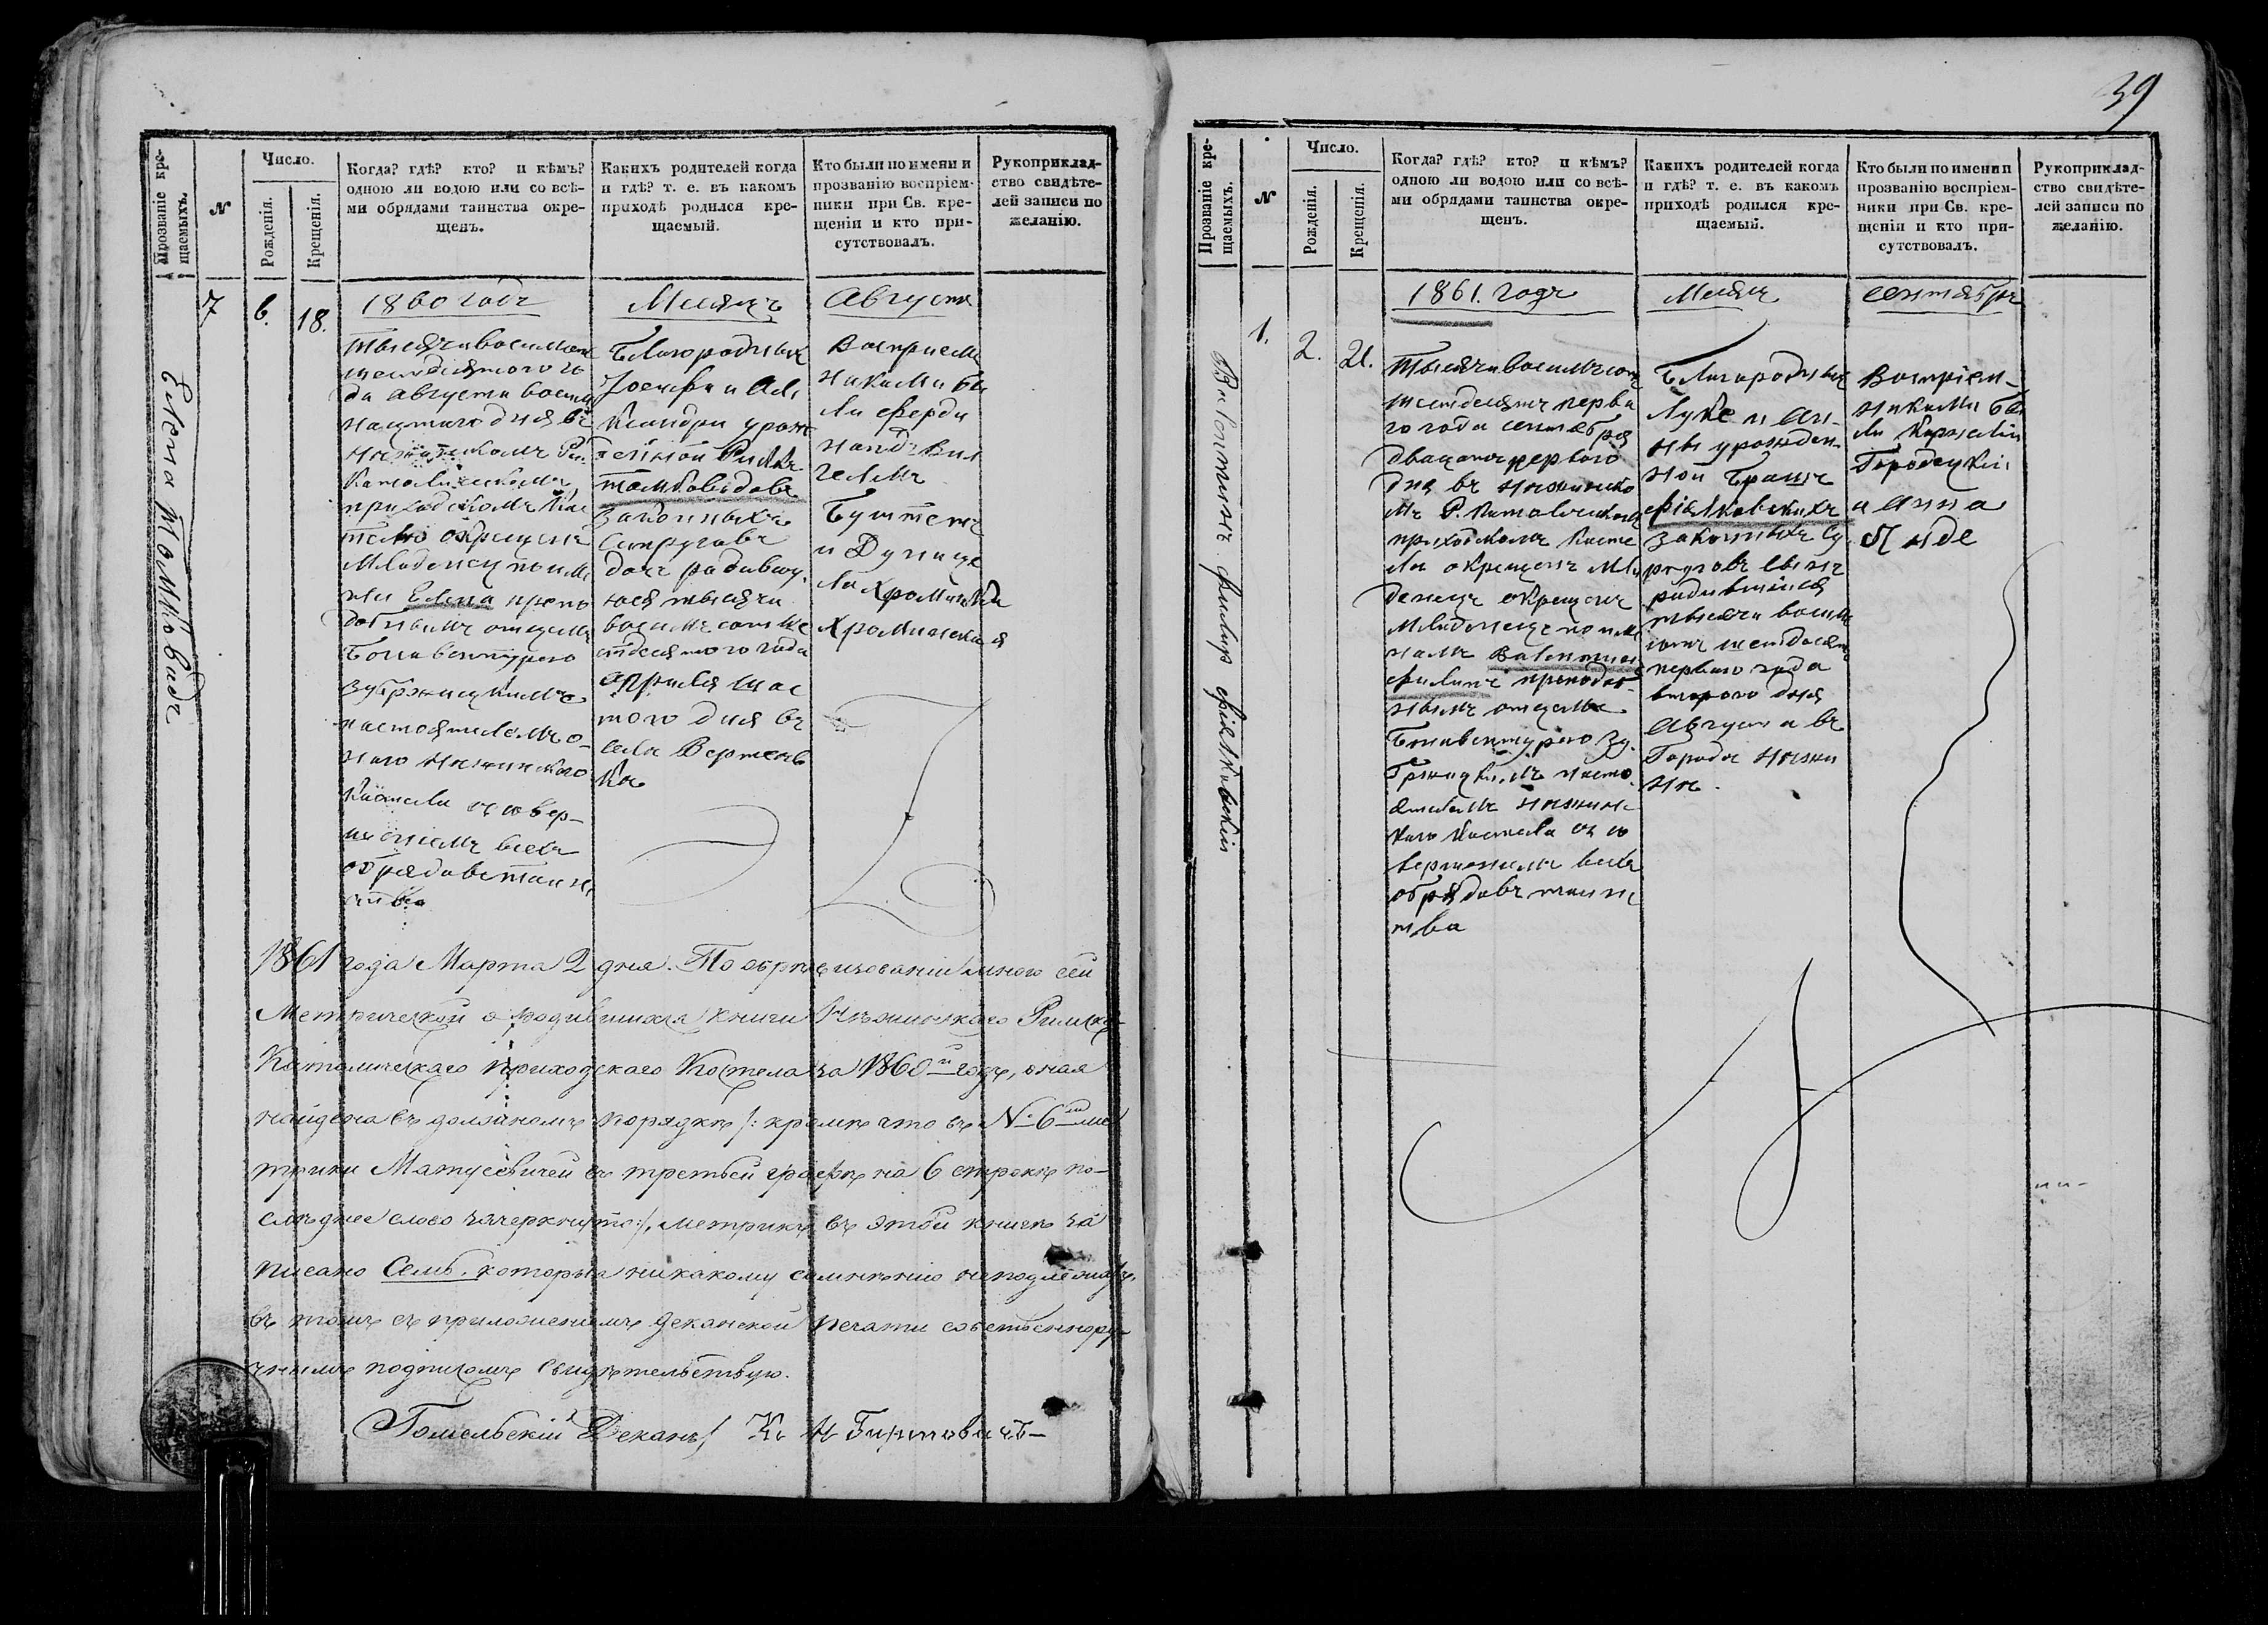 39
Прозваніе кре-
щаемыхъ.
N
Число.
Рожденія.
Крещенія.
Когда? гдѣ? кто? и кѣмъ?
одною ли водою или со всѣ-
ми обрядами таинства окре-
щенъ.
Какихъ родителей когда
и гдѣ? т. е. въ какомъ
приходѣ родился кре-
щаемый.
Кто были по имени и
прозванію воспріем-
ники при Св. кре-
щеніи и кто при-
сутствовалъ.
Рукоприклад-
ство свидѣте-
лей записи по
желанію.
Елена Томковидъ
7
6.
18.
1860 годъ
шестдесятого го
да Августа восем
надцатого дня въ
Католическомъ
приходскомъ Кос
теле окрещенъ
Младенец по име
ни Елена препо
добнымъ отцемъ
Бонавентурою
Зубржицкимъ
настоятелемъ о-
ного Нежинского
Костела съ совер-
шениемъ всехъ
обрядовъ таин
ства
Месяцъ
Благородныхъ
Иосифа и Але
ксандры урож
денной
Томковидовъ
законныхъ
Супруговъ
дочь родившу
юся тысяча
восемъ сотъ ше
стдесятого года
Апреля шес
того дня въ
селе Вертеев
ке
Август
Восприем
никами бы
ли Ферди
нандъ Вил
гелмъ
и
Хроминская
1861 года Марта 2 дня. По обревизованіи мною сей
Метрической о родившихся книги Нѣжинскаго Римско-
Католическаго Приходскаго Костела за 1860й годъ, оная
найдена въ должномъ порядкѣ /: кромѣ что въ № 6м ме
трики Матусевичей въ третьей графѣ на 6 строкѣ по-
слѣднее слово зачеркнуто :/, метрикъ въ этой книгѣ за
писано Семь. которыя никакому сомнѣнію неподлежатъ,
въ томъ съ приложеніемъ деканской печати собственнору-
чнымъ подписомъ свидѣтельствую.
Гомельскій Деканъ К.
Прозваніе кре-
щаемыхъ.
N
Число.
Рожденія.
Крещенія.
Когда? гдѣ? кто? и кѣмъ?
одною ли водою или со всѣ-
ми обрядами таинства окре-
щенъ.
Какихъ родителей когда
и гдѣ? т. е. въ какомъ
приходѣ родился кре-
щаемый.
Кто были по имени и
прозванію воспріем-
ники при Св. кре-
щеніи и кто при-
сутствовалъ.
Рукоприклад-
ство свидѣте-
лей записи по
желанію.
Валентинъ Филипъ Фіялковскій
1.
2.
21.
1861. годъ
Тысяча восемъ сотъ
шестдесятъ перва
го года сентября
двацать первого
дня въ Нежинско
мъ Р. Католическомъ
приходскомъ Косте
ле окрещенъ мла
денецъ окрещенъ
Младенецъ по име
намъ Валентин
Филипъ преподоб-
нымъ отцемъ
Бонавентурою Зу
бржицкимъ насто
ятелемъ Нежинс
кого Костела съ со
вершениемъ всехъ
обрядовъ таинс
тва
Месяцъ
Благородныхъ
Луке и Ан-
ны урожден-
ной
Фіялковскихъ
законныхъ Су
пруговъ сынъ
родившийся
тысяча восемъ
сотъ шестдесятъ
первого года
второго дня
Августа въ
Городе Нежи
не.
сентябрь
Воспріем-
никами бы
ли Корнелій
Городецкій
и Анна